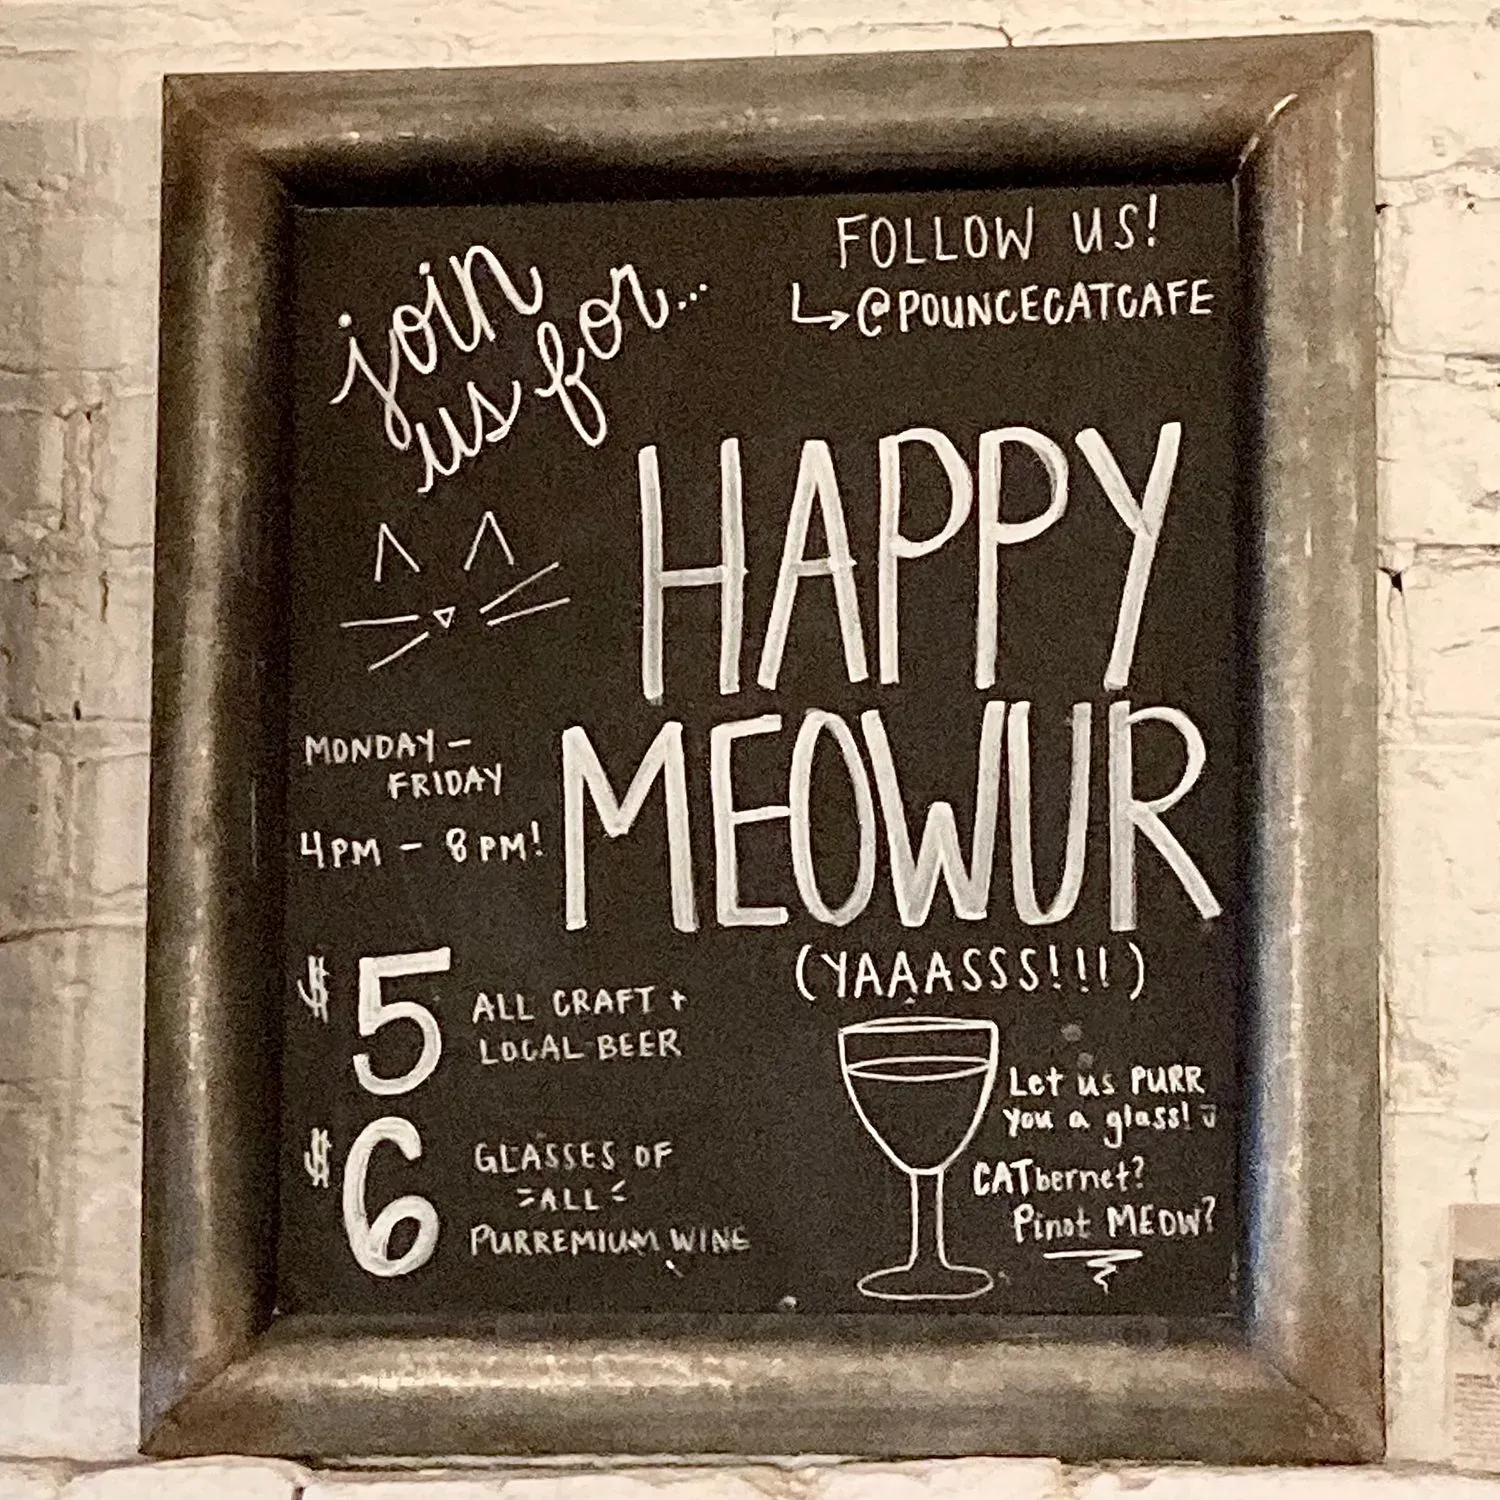 join
us for...
FOLLOW US!
@POUNCECATCAFE
HAPPY
MEOWUR
(YAAASSS!!!!)
MONDAY -
FRIDAY
4PM - 8PM!
$5 ALL CRAFT +
LOCAL BEER
$6 GLASSES OF
ALL
PURREMIUM WINE
Let us PURR
you a glass!
CATbernet?
Pinot MEOW?